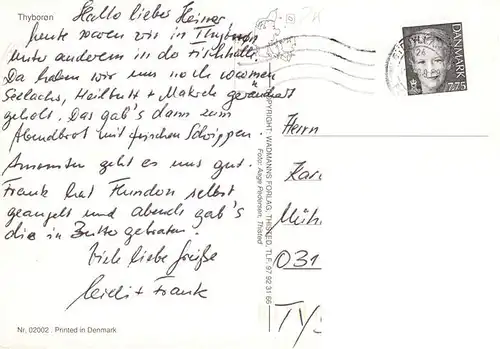 Thyborøn
Hallo lieber Heiner
heute waren wir in Thyborøn
unter anderem in do Fischhalle.
Da haben wir uns noch warmen
Seelachs, Heilbutt + Makrele geräuchert
geholt. Das gab's dann zum
Abendbrot mit frischen Schrippen.
Ansonsten geht es uns gut.
Frank hat Flundern selbst
geangelt und abends gab's
die in Butter gebraten.
Liebe Grüße
Heidi + Frank
Nr. 02002 . Printed in Denmark
COPYRIGHT: WADMANNS FORLAG, THISTED, TLF. 97 92 31 66
Foto: Aage Pedersen, Thisted
DANMARK
7.75
Herrn
Kar
Müh
031